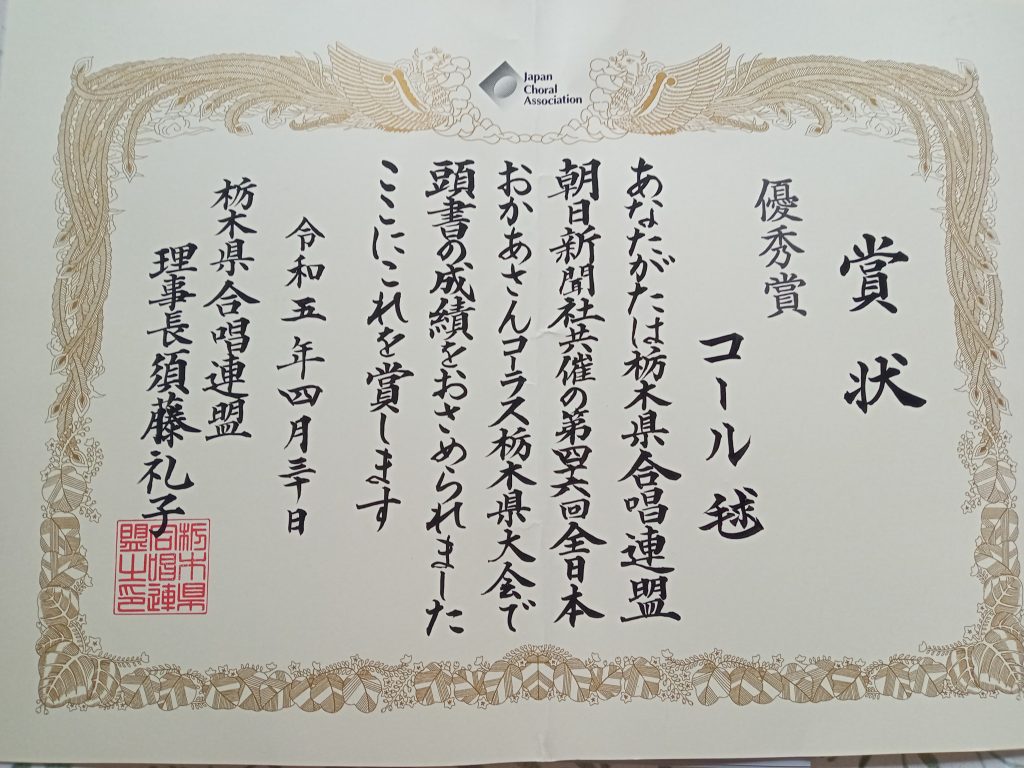 Japan
Choral
Association
賞状
優秀賞
コール毬
あなたがたは栃木県合唱連盟
朝日新聞社共催の第四六回全日本
おかあさんコーラス栃木県大会で
頭書の成績をおさめられました
ここにこれを賞します
令和五年四月三十日
栃木県合唱連盟
理事長須藤礼子
栃木県
合唱連
盟之印